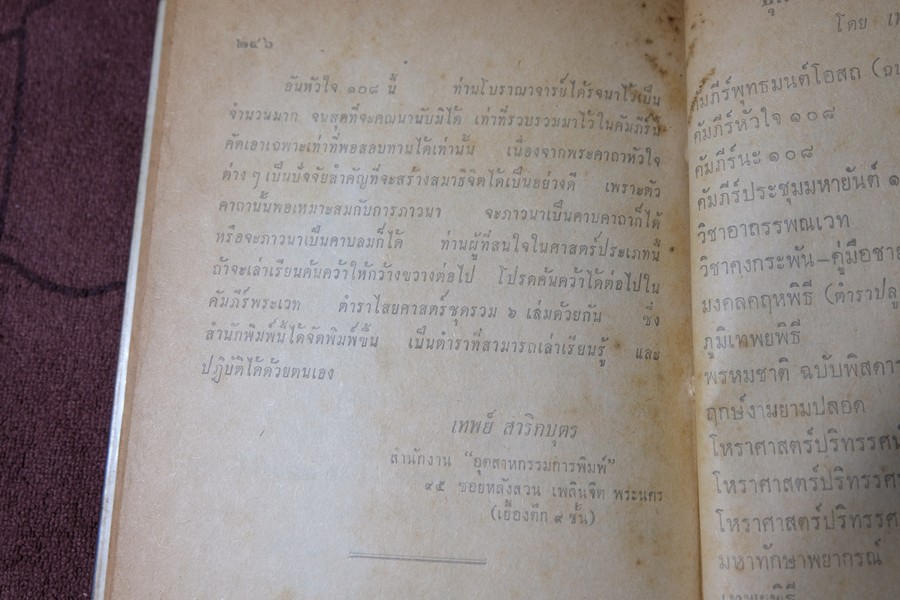 ๒๔๖
อันหัวใจ ๑๐๘ นี้ ท่านโบราณาจารย์ได้รจนาไว้เป็น
จำนวนมาก จนสุดที่จะคณนานับมิได้ เท่าที่รวบรวมมาไว้ในคัมภีร์นี้
คัดเอาเฉพาะเท่าที่พอสอบทานได้เท่านั้น เนื่องจากพระคาถาหัวใจ
ต่าง ๆ เป็นปัจจัยสำคัญที่จะสร้างสมาธิจิตได้เป็นอย่างดี เพราะตัว
คาถานั้นพอเหมาะสมกับการภาวนา จะภาวนาเป็นคาบคาถาก็ได้
หรือจะภาวนาเป็นคาบลมก็ได้ ท่านผู้ที่สนใจในศาสตร์ประเภทนี้
ถ้าจะเล่าเรียนค้นคว้าให้กว้างขวางต่อไป โปรดค้นคว้าได้ต่อไปใน
คัมภีร์พระเวท ตำราไสยศาสตร์ชุดรวม ๖ เล่มด้วยกัน ซึ่ง
สำนักพิมพ์นี้ได้จัดพิมพ์ขึ้น เป็นตำราที่สามารถเล่าเรียนรู้ และ
ปฏิบัติได้ด้วยตนเอง
เทพย์ สาริกบุตร
สำนักงาน “อุตสาหกรรมการพิมพ์”
๙๕ ซอยหลังสวน เพลินจิต พระนคร
(เยื้องตึก ๙ ชั้น)
โดย
คัมภีร์พุทธมนต์โอสถ
คัมภีร์หัวใจ ๑๐๘
คัมภีร์นะ ๑๐๘
คัมภีร์ประชุมมหายันต์
วิชาอาถรรพณเวท
วิชาคงกระพัน–คู่มือชาย
มงคลคฤหพิธี (ตำราปลู
ภูมิเทพยพิธี
พรหมชาติ ฉบับพิสดาร
ฤกษ์งามยามปลอด
โหราศาสตร์ปริทรรศน์
โหราศาสตร์ปริทรรศ
โหราศาสตร์ปริทรรศ
มหาทักษาพยากรณ์
เทพยพิธี